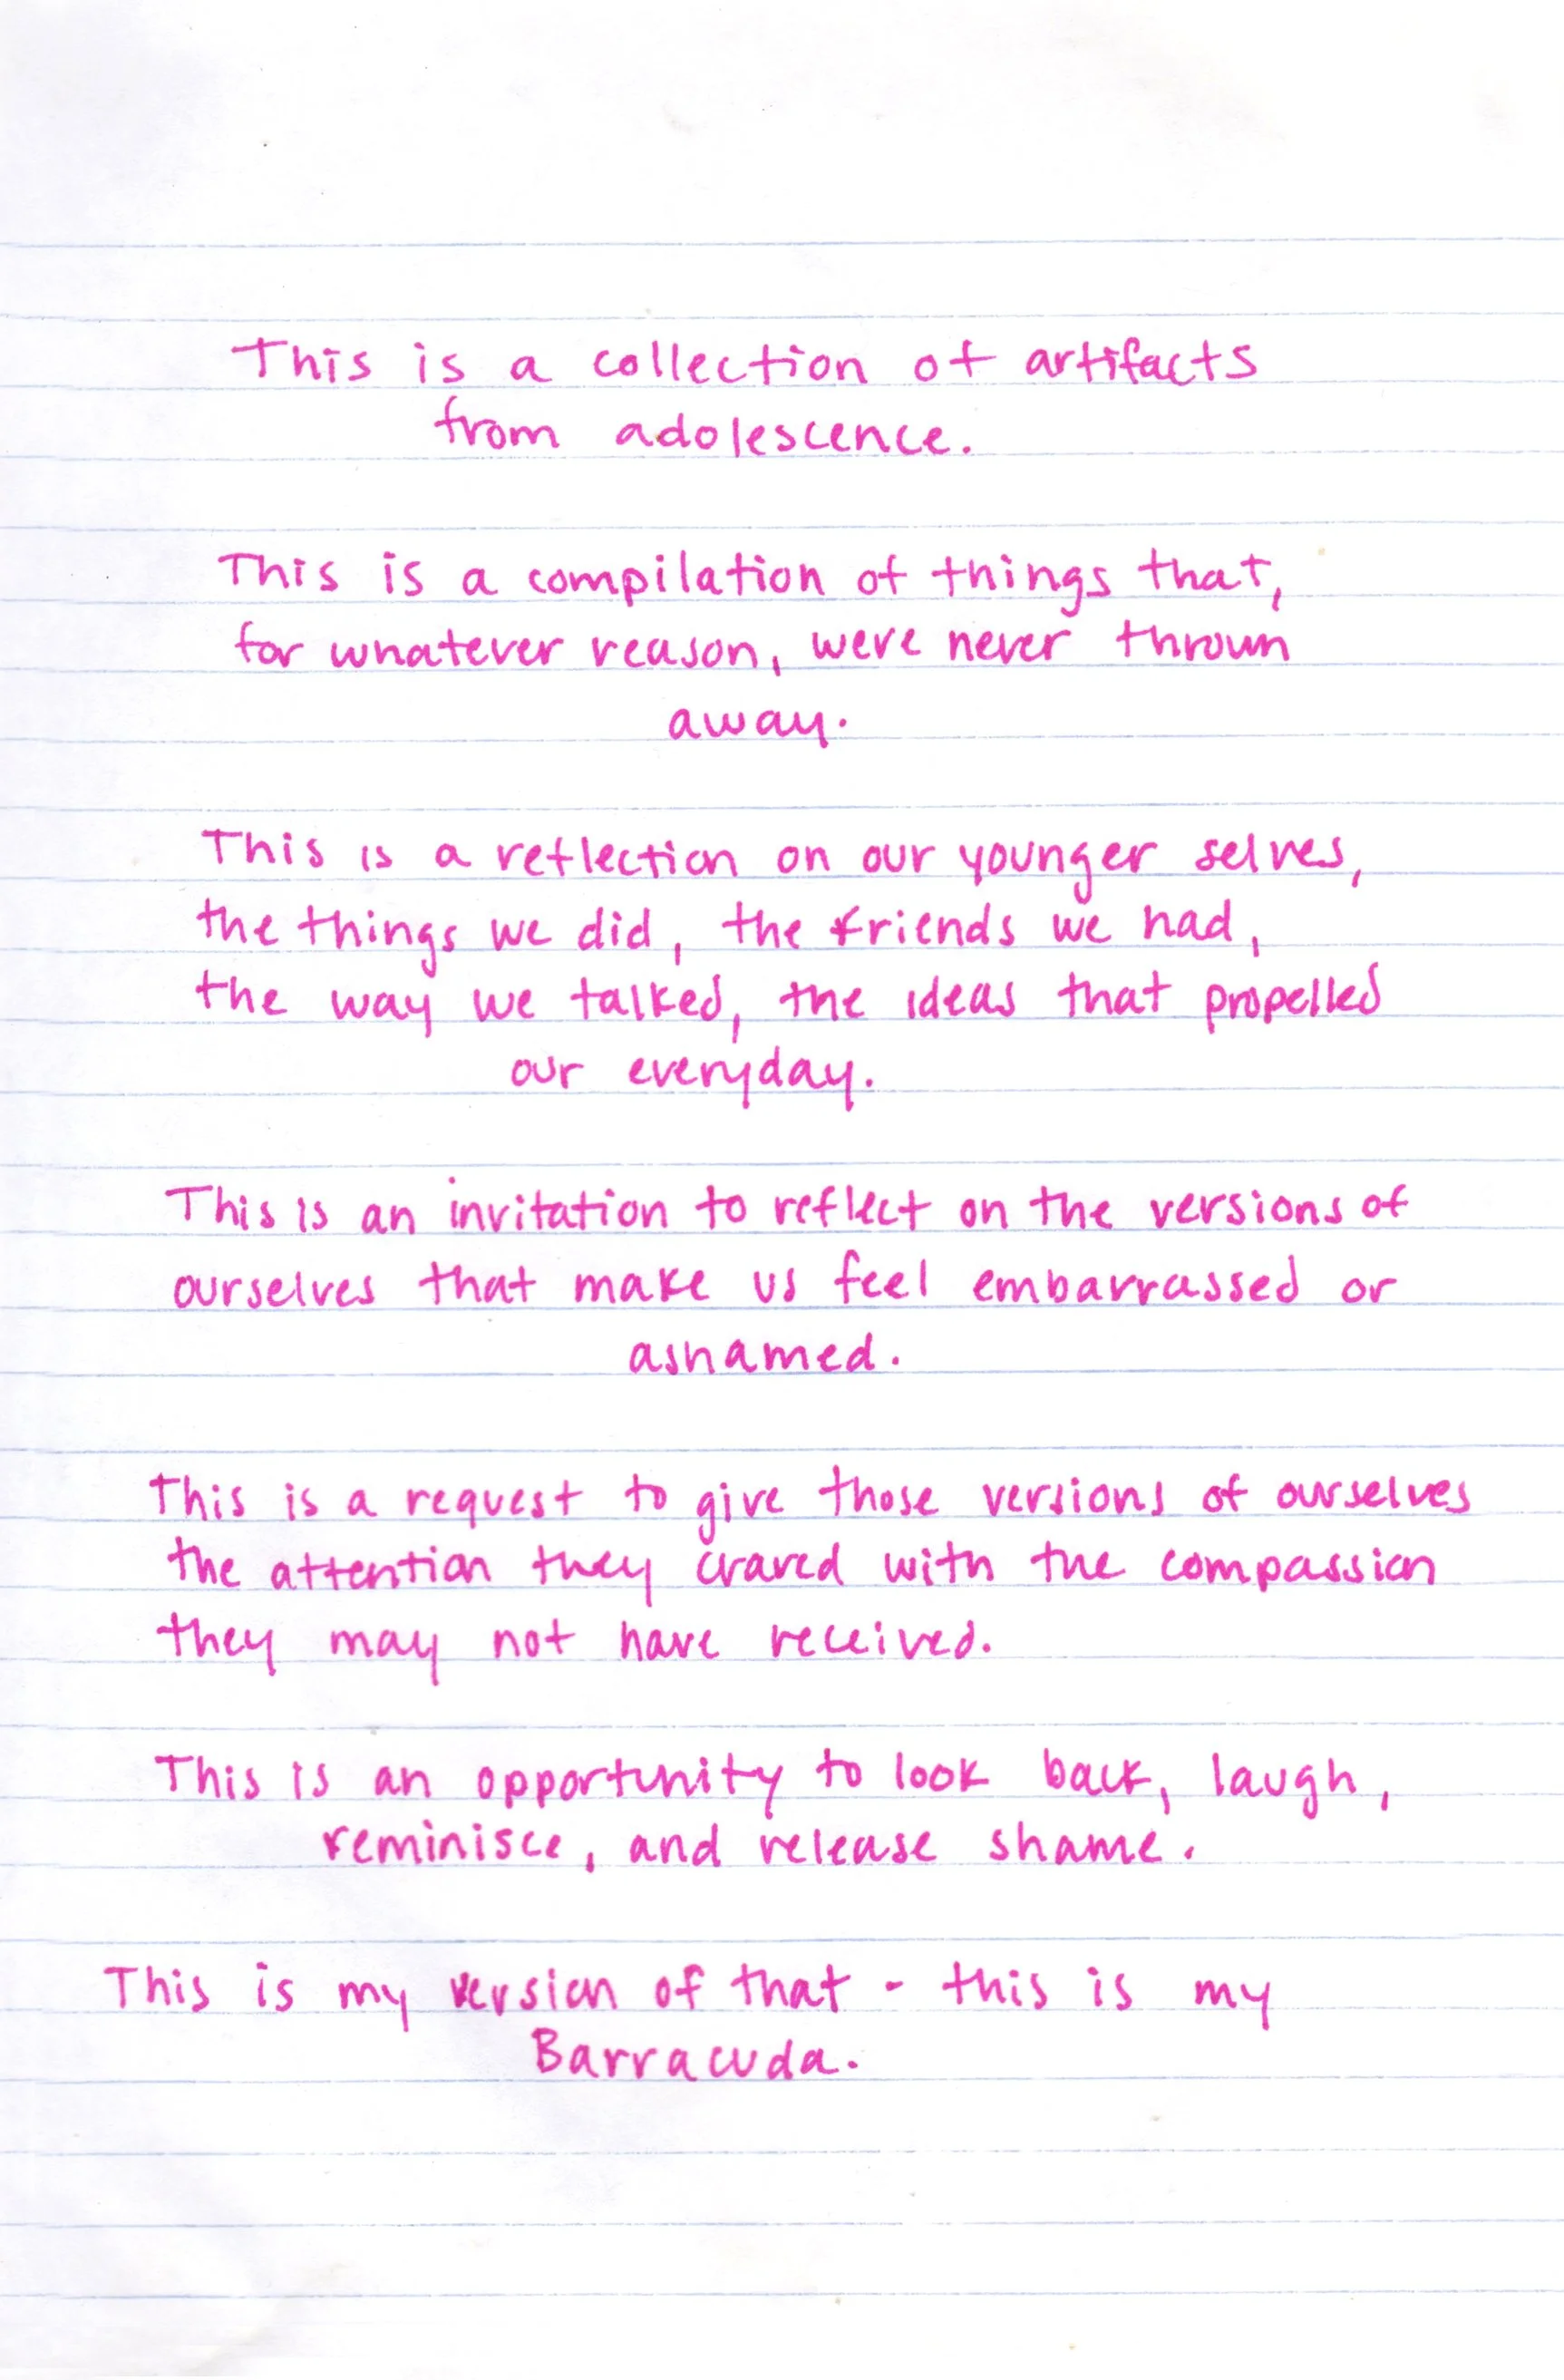 This is a collection of artifacts
from adolescence.
This is a compilation of things that,
for whatever reason, were never thrown
away.
This is a reflection on our younger selves,
the things we did, the friends we had,
the way we talked, the ideas that propelled
our everyday.
This is an invitation to reflect on the versions of
ourselves that make us feel embarrassed or
ashamed.
This is a request to give those versions of ourselves
the attention they craved with the compassion
they may not have received.
This is an opportunity to look back, laugh,
reminisce, and release shame.
This is my version of that - this is my
Barracuda.